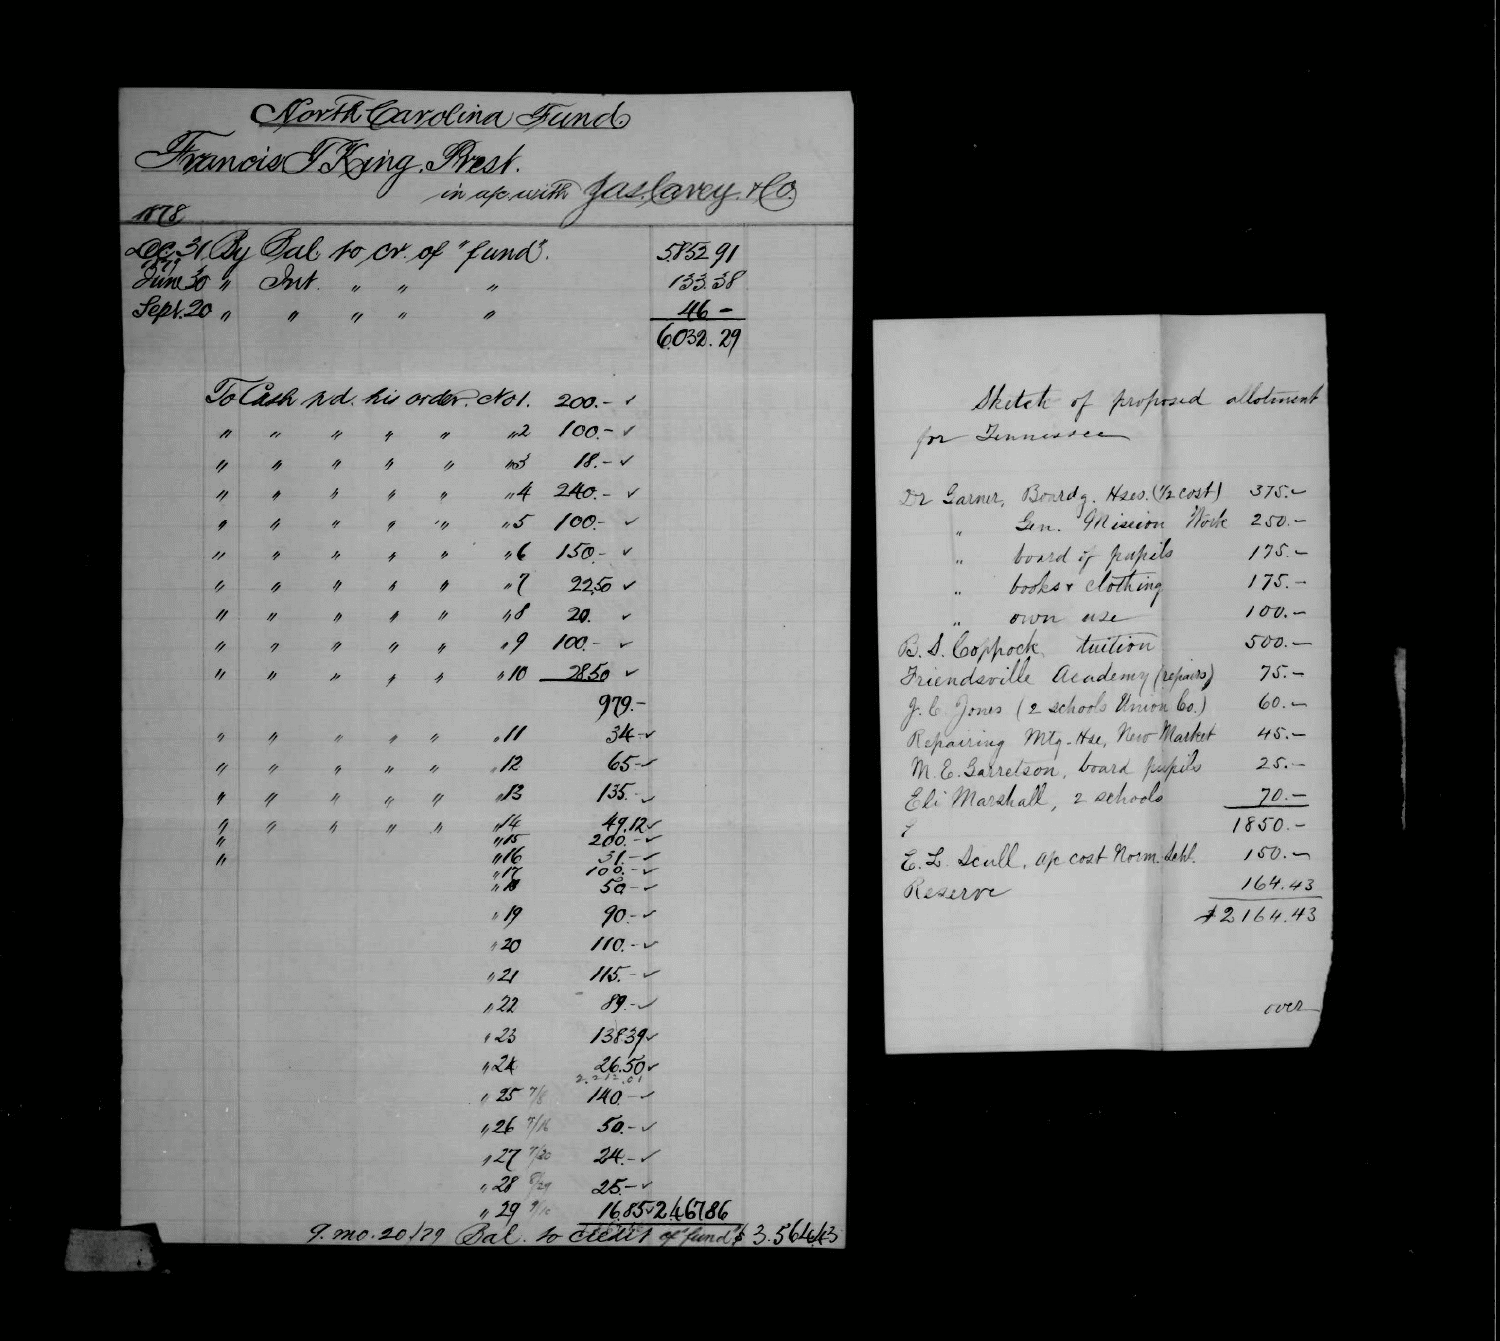 North Carolina Fund.
Francis T King. Prest.
in a/c. with Jas. Carey. & Co.
1878
Dec. 31 By Bal to cr. of "fund". 5852 91
1879
June 30 " Int. " " " 133.38
Sept. 20 " " " " " 46 -
6.032.29
To Cash pd. his order. No 1. 200.- ✓
" " " " " " 2 100.- ✓
" " " " " " 3 18.- ✓
" " " " " " 4 240.- ✓
" " " " " " 5 100.- ✓
" " " " " " 6 150.- ✓
" " " " " " 7 22.50 ✓
" " " " " " 8 20. ✓
" " " " " " 9 100.- ✓
" " " " " " 10 28.50 ✓
979.-
" " " " " " 11 34- ✓
" " " " " " 12 65- ✓
" " " " " " 13 135.- ✓
" " " " " " 14 49.12 ✓
" " 15 200.- ✓
" " 16 31.- ✓
" 17 100.- ✓
" 18 50- ✓
" 19 90.- ✓
" 20 110.- ✓
" 21 115.- ✓
" 22 89.- ✓
" 23 138.39 ✓
" 24 26.50 ✓
2.212.01
" 25 7/8 140.- ✓
" 26 7/16 50.- ✓
" 27 7/20 24.- ✓
" 28 8/29 25.- ✓
" 29 9/10 16.85 ✓ 2.467.86
9. mo. 20/79 Bal. to credit of "fund" $ 3.564.43
Sketch of proposed allotment
for Tennessee
Dr Garner, Boardg. Hses. (1/2 cost) 375.-
" Gen. Mission Work 250.-
" board of pupils 175.-
" books & clothing 175.-
" own use 100.-
B. S. Coppock, tuition 500.-
Friendsville Academy (repairs) 75.-
J. C. Jones (2 schools Union Co.) 60.-
Repairing Mtg-Hse, New Market 45.-
M. E. Garretson, board pupils 25.-
Eli Marshall, 2 schools 70.-
1850.-
E. L. Scull, a/c cost Norm. Schl. 150.-
Reserve 164.43
$2164.43
over